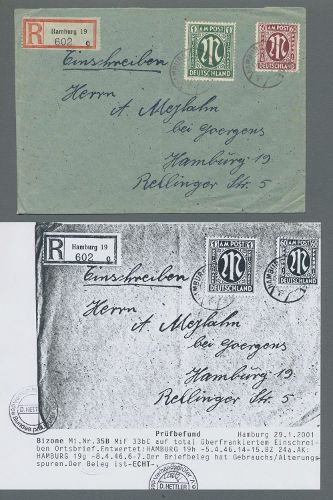 R
Hamburg 19
602 c
1 AM POST 1
DEUTSCHLAND
60 AM POST 60
DEUTSCHLAND
Einschreiben
Herrn
A. Mejlahn
bei Goergens
Hamburg 19
Rellinger Str. 5
R
Hamburg 19
602 c
1 AM POST 1
DEUTSCHLAND
60 AM POST 60
DEUTSCHLAND
Einschreiben
Herrn
A. Mejlahn
bei Goergens
Hamburg 19
Rellinger Str. 5
D. HETTLER
Prüfbefund Hamburg 29.1.2001
Bizone Mi.Nr. 35B MiF 33bC auf total überfrankiertem Einschrei-
ben Ortsbrief. Entwertet: HAMBURG 19h -5.4.46.14-15.BZ 24a.AK:
HAMBURG 19g -8.4.46.6-7. Der Briefbeleg hat Gebrauchs/Alterungs-
spuren. Der Beleg ist -ECHT-.
D. HETTLER